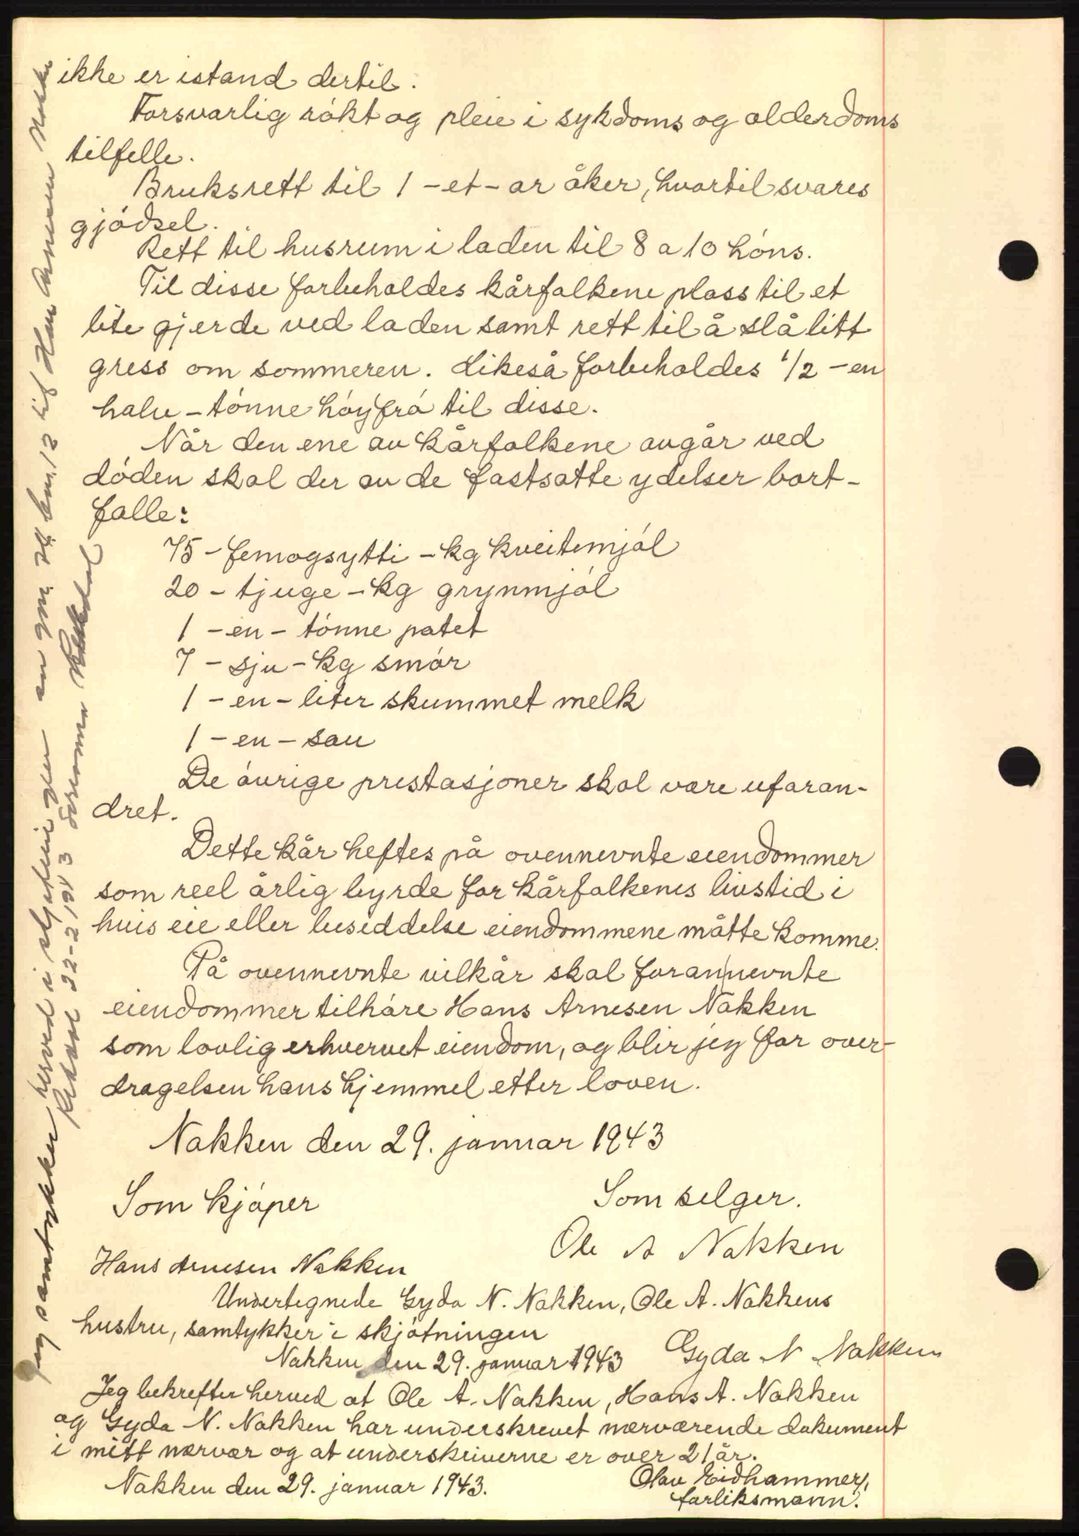 ikke er istand dertil.
Forsvarlig røkt og pleie i sykdoms og alderdoms
tilfelle.
Bruksrett til 1 - et - ar åker, hvortil svares
gjødsel.
Rett til husrum i laden til 8 a 10 höns.
Til disse forbeholdes kårfolkene plass til et
lite gjerde ved laden samt rett til å slå litt
gress om sommeren. Likeså forbeholdes 1/2 - en
halv - tönne höyfrö til disse.
Når den ene av kårfolkene avgår ved
döden skal der av de fastsatte ydelser bort-
falle:
75 - femogsytti - kg kveitemjöl
20 - tjuge - kg grynmjöl
1 - en - tönne potet
7 - sju - kg smör
1 - en - liter skummet melk
1 - en - sau
De övrige prestasjoner skal være uforan-
dret.
Dette kår heftes på ovennevnte eiendommer
som reel årlig byrde for kårfolkenes livstid i
hvis eie eller besiddelse eiendommene måtte komme.
På ovennevnte vilkår skal forannevnte
eiendommer tilhöre Hans Arnesen Nakken
som lovlig erhvervet eiendom, og blir jeg for over-
dragelsen hans hjemmel etter loven.
Nakken den 29. januar 1943
Som kjöper
Som selger.
Ole A Nakken
Hans Arnesen Nakken
Undertegnede Gyda N. Nakken, Ole A. Nakkens
hustru, samtykker i skjötningen
Nakken den 29. januar 1943 Gyda N Nakken
Jeg bekrefter herved at Ole A. Nakken, Hans A. Nakken
og Gyda N. Nakken har underskrevet nærværende dokument
i mitt nærvær og at underskriverne er over 21 år.
Nakken den 29. januar 1943.
Olav Eidhammer,
forliksmann.
Jeg samtykker herved i skjötningen av gnr. 24 bnr. 12 til Hans Arnesen Nakken
22-2 1943